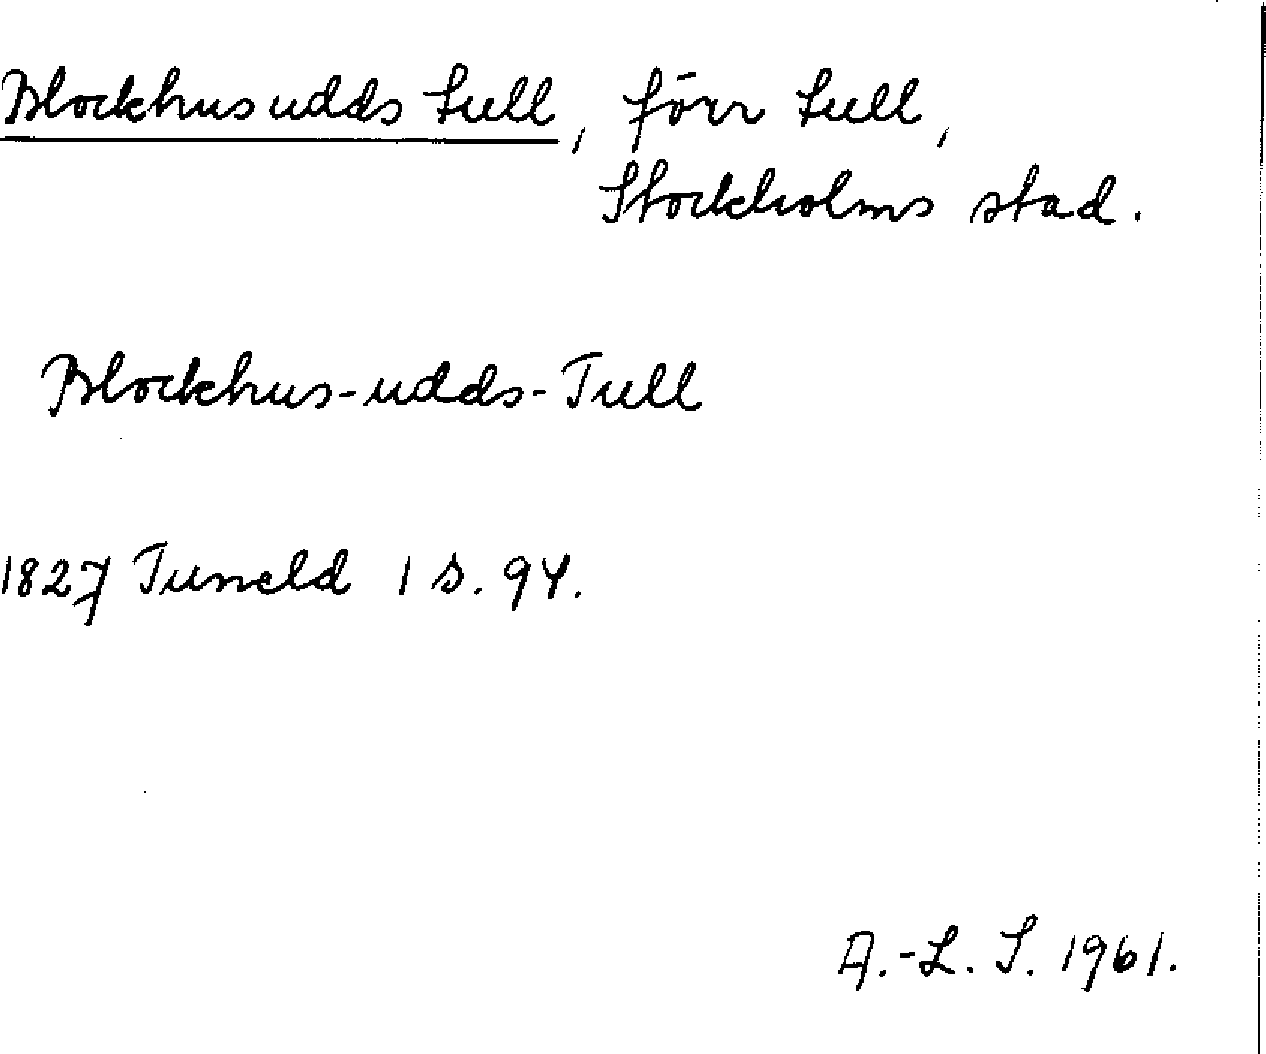 Blockhusudds tull, förr tull,
Stockholms stad.
Blockhus-udds-Tull
1827 Tuneld 1 s. 94.
A.-L. S. 1961.